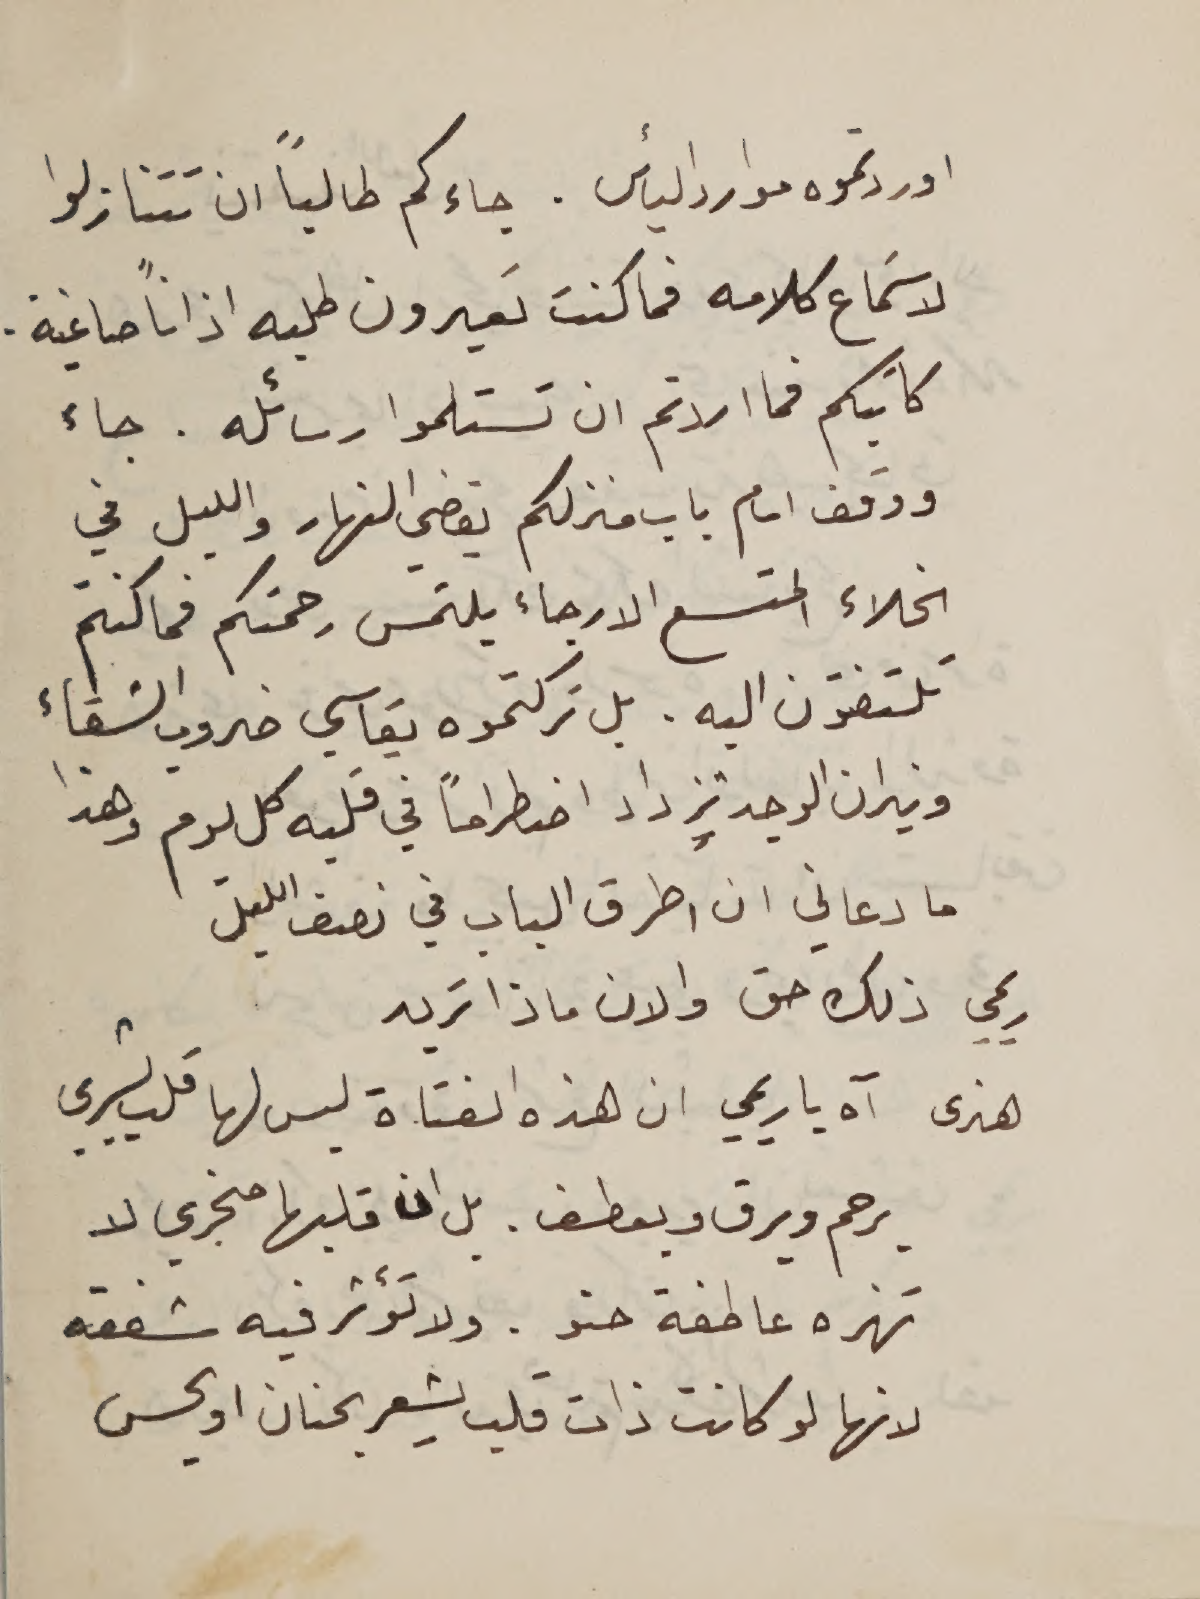 اوردتموه موارد اليأس . جاءكم طالباً ان تتنازلوا
لاستماع كلامه فما كنت تعيرون طلبه اذاناً صاغية .
كاتبكم فما اردتم ان تستلموا رسائله . جاء
ووقف امام باب منزلكم يقضي النهار والليل في
الخلاء المتسع الارجاء يلتمس رحمتكم فما كنتم
تلتفتون اليه . بل تركتموه يقاسي ضروب الشقاء
ونيران الوجد تزداد اضطراماً في قلبه كل يوم وهذا
ما دعاني ان اطرق الباب في نصف الليل
ريمي ذلك حق والان ماذا تريد
هنري آه يا ريمي ان هذه الفتاة ليس لها قلب بشري
يرحم ويرق ويعطف . بل ان قلبها حجري لا
تهزه عاطفة حنو . ولا تؤثر فيه شفقة
لانها لو كانت ذات قلب يشعر بحنان او يحس